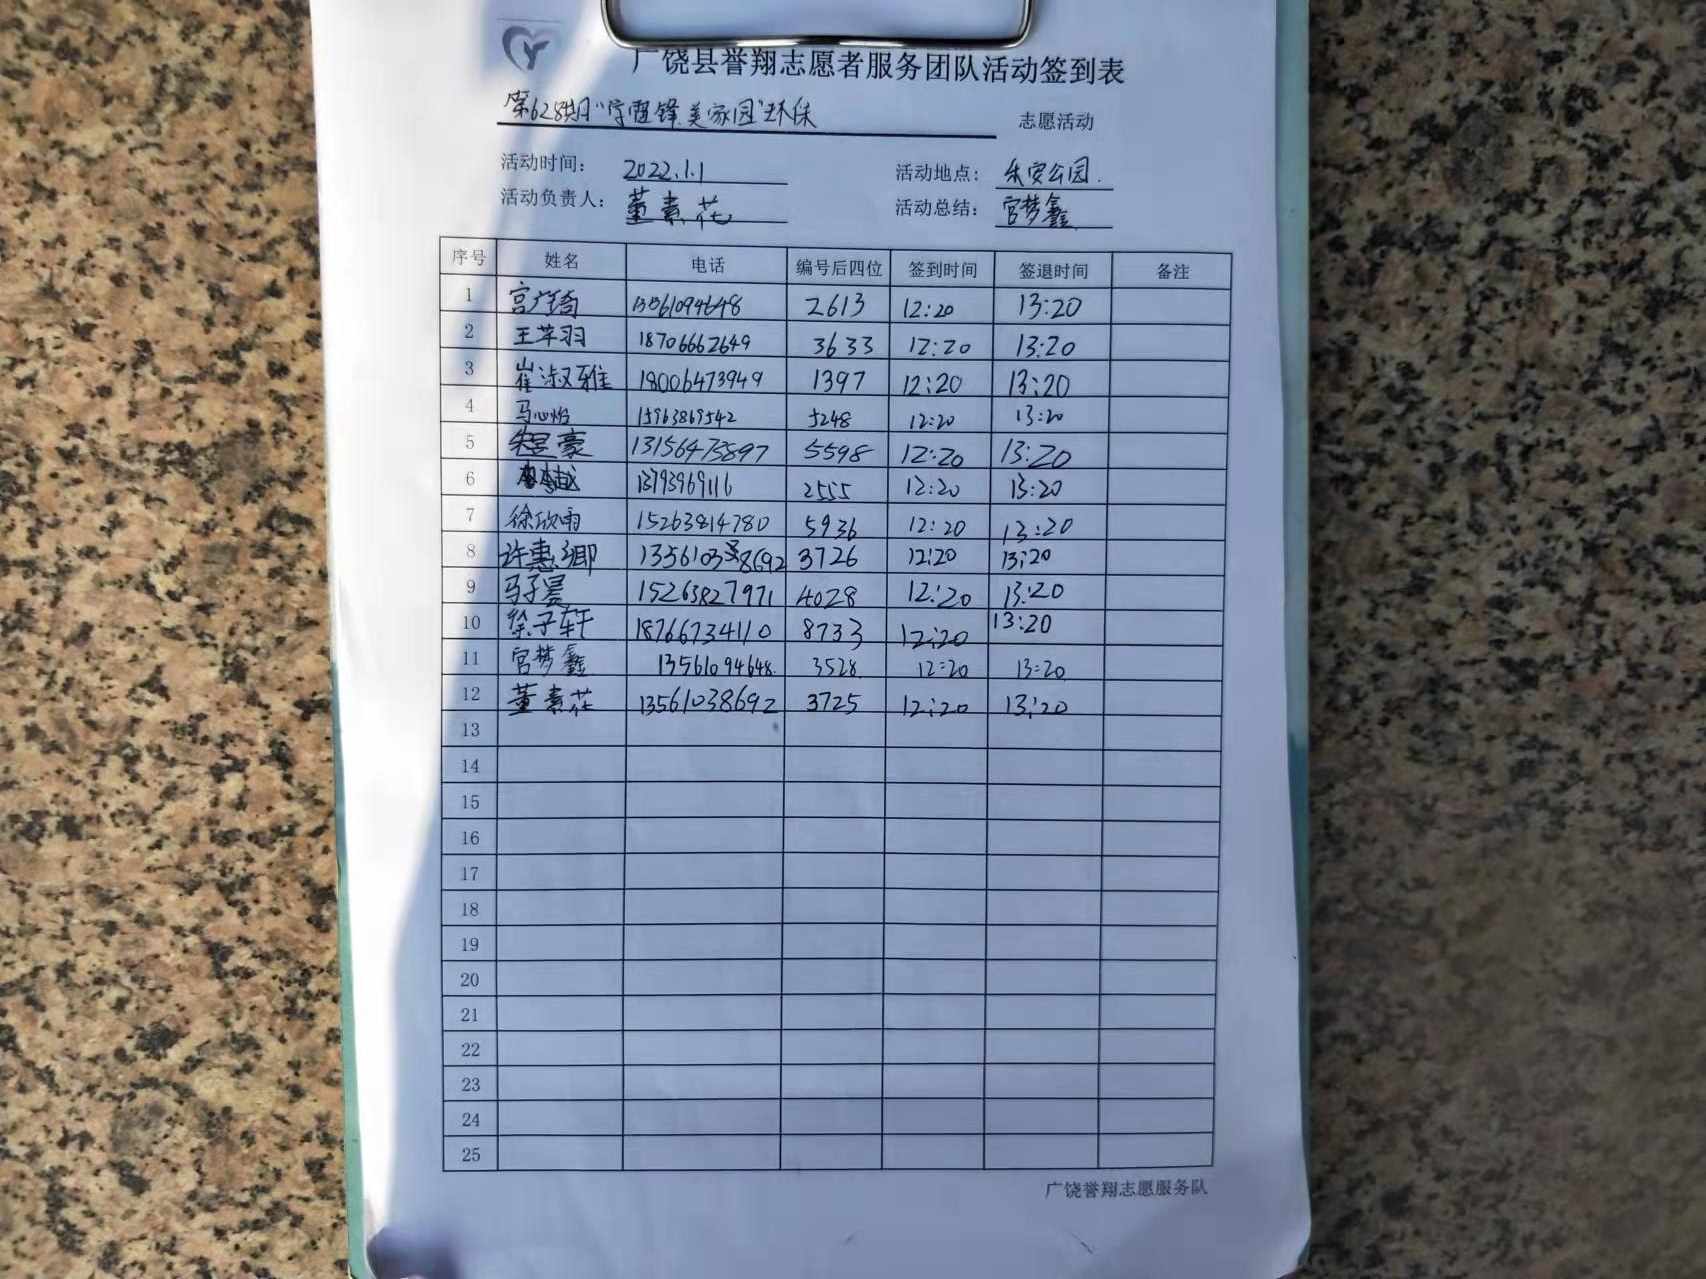 广饶县誉翔志愿者服务团队活动签到表
第628期"学雷锋美家园"环保 志愿活动
活动时间： 2022.1.1 活动地点： 乐安公园.
活动负责人： 董素花 活动总结： 宫梦鑫
序号 姓名 电话 编号后四位 签到时间 签退时间 备注
1 宫 13561094648 2613 12:20 13:20
2 王苹羽 18706662649 3633 12:20 13:20
3 崔淑雅 18006473949 1397 12:20 13:20
4 马心怡 15963869542 5248 12:20 13:20
5 豪 13156473897 5598 12:20 13:20
6 13793969116 2555 12:20 13:20
7 徐欣雨 15263814780 5936 12:20 13:20
8 许惠卿 13561038692 3726 12:20 13:20
9 马子昊 15263827971 4028 12:20 13:20
10 徐子轩 18766734110 8733 12:20 13:20
11 宫梦鑫 13561094648. 3528. 12:20 13:20.
12 董素花 13561038692 3725 12:20 13:20
13
14
15
16
17
18
19
20
21
22
23
24
25
广饶誉翔志愿服务队